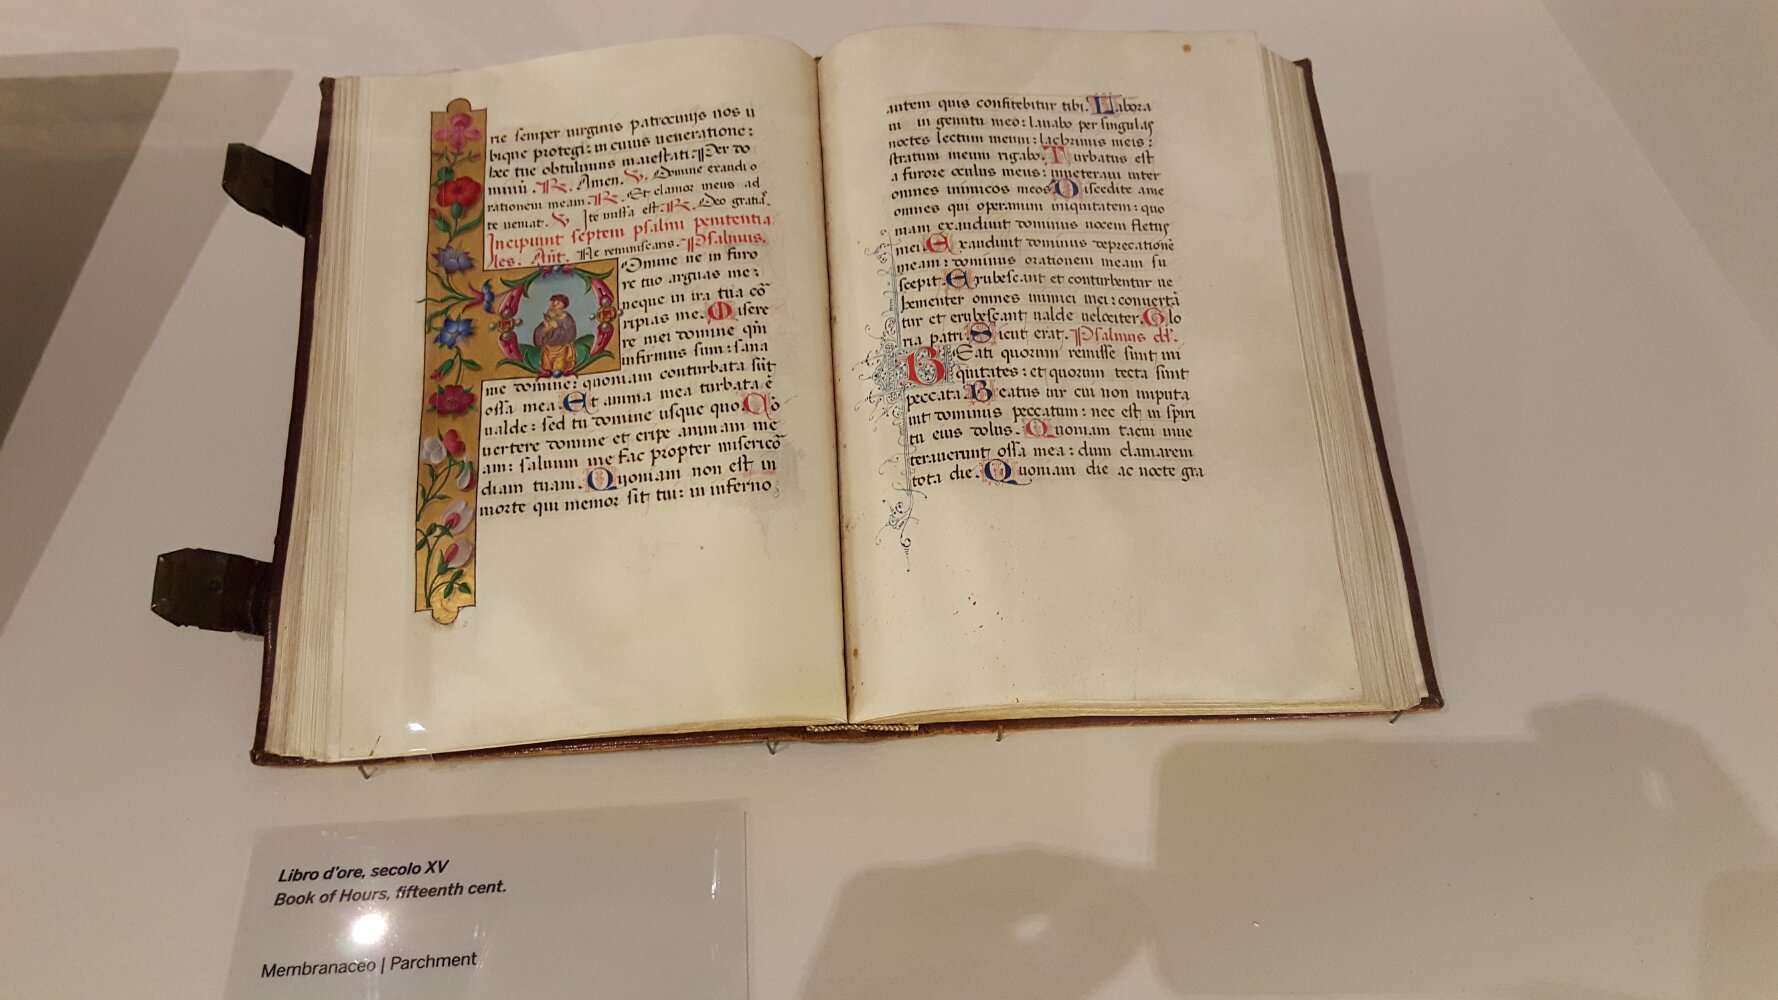 rie semper uirginis patrocinijs nos u
bique protegi: in cuius ueneratione:
hec tue obtulimus maiestati. Per do
minũ. R. Amen. V. Domine exaudi o
rationem meam. R. Et clamor meus ad
te ueniat. V. Ite missa est. R. Deo gratias.
Incipiunt septem psalmi penitentia
les. Añt. Ne reminiscaris. Psalmus.
Domine ne in furo
re tuo arguas me:
neque in ira tua cõ
ripias me. Misere
re mei domine qm̃
infirmus sum: sana
me domine: quoniam conturbata sũt
ossa mea. Et anima mea turbata ẽ
ualde: sed tu domine usque quo. Cõ
uertere domine et eripe animam me
am: saluum me fac propter misericõ
diam tuam. Quoniam non est in
morte qui memor sit tui: in inferno
autem quis confitebitur tibi. Labora
ui in gemitu meo: lauabo per singulas
noctes lectum meum: lachrimis meis:
stratum meum rigabo. Turbatus est
a furore oculus meus: inueteraui inter
omnes inimicos meos. Discedite ame
omnes qui operamini iniquitatem: quo
niam exaudiuit dominus uocem fletus
mei. Exaudiuit dominus deprecationẽ
meam: dominus orationem meam su
scepit. Erubescant et conturbentur ue
hementer omnes inimici mei: conuertã
tur et erubescant ualde uelociter. Glo
ria patri. Sicut erat. Psalmus dd.
Beati quorum remisse sunt ini
quitates: et quorum tecta sunt
peccata. Beatus uir cui non imputa
uit dominus peccatum: nec est in spiri
tu eius dolus. Quoniam tacui inue
terauerunt ossa mea: dum clamarem
tota die. Quoniam die ac nocte gra
Libro d'ore, secolo XV
Book of Hours, fifteenth cent.
Membranaceo | Parchment